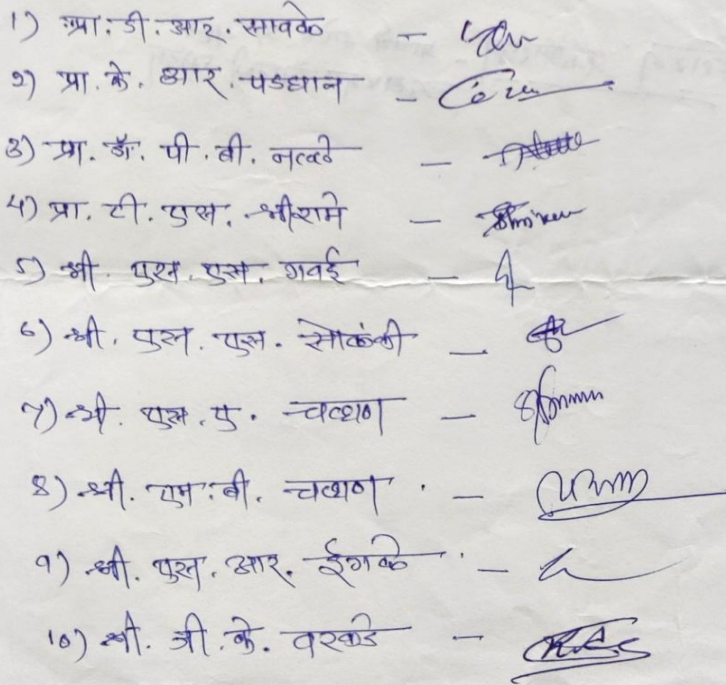 1) प्रा. डी. आर. सावळे -
२) प्रा. के. आर. पडघान -
3) प्रा. डॉ. पी. बी. नत्थे -
4) प्रा. टी. एस. श्रीरामे -
5) श्री. एस. एस. गवई -
6) श्री. एस. एस. सोळंकी -
7) श्री. एस. ए. चव्हाण -
8) श्री. एम. बी. चव्हाण -
9) श्री. एस. आर. ईंगळे -
10) श्री. जी. के. वरकडे -